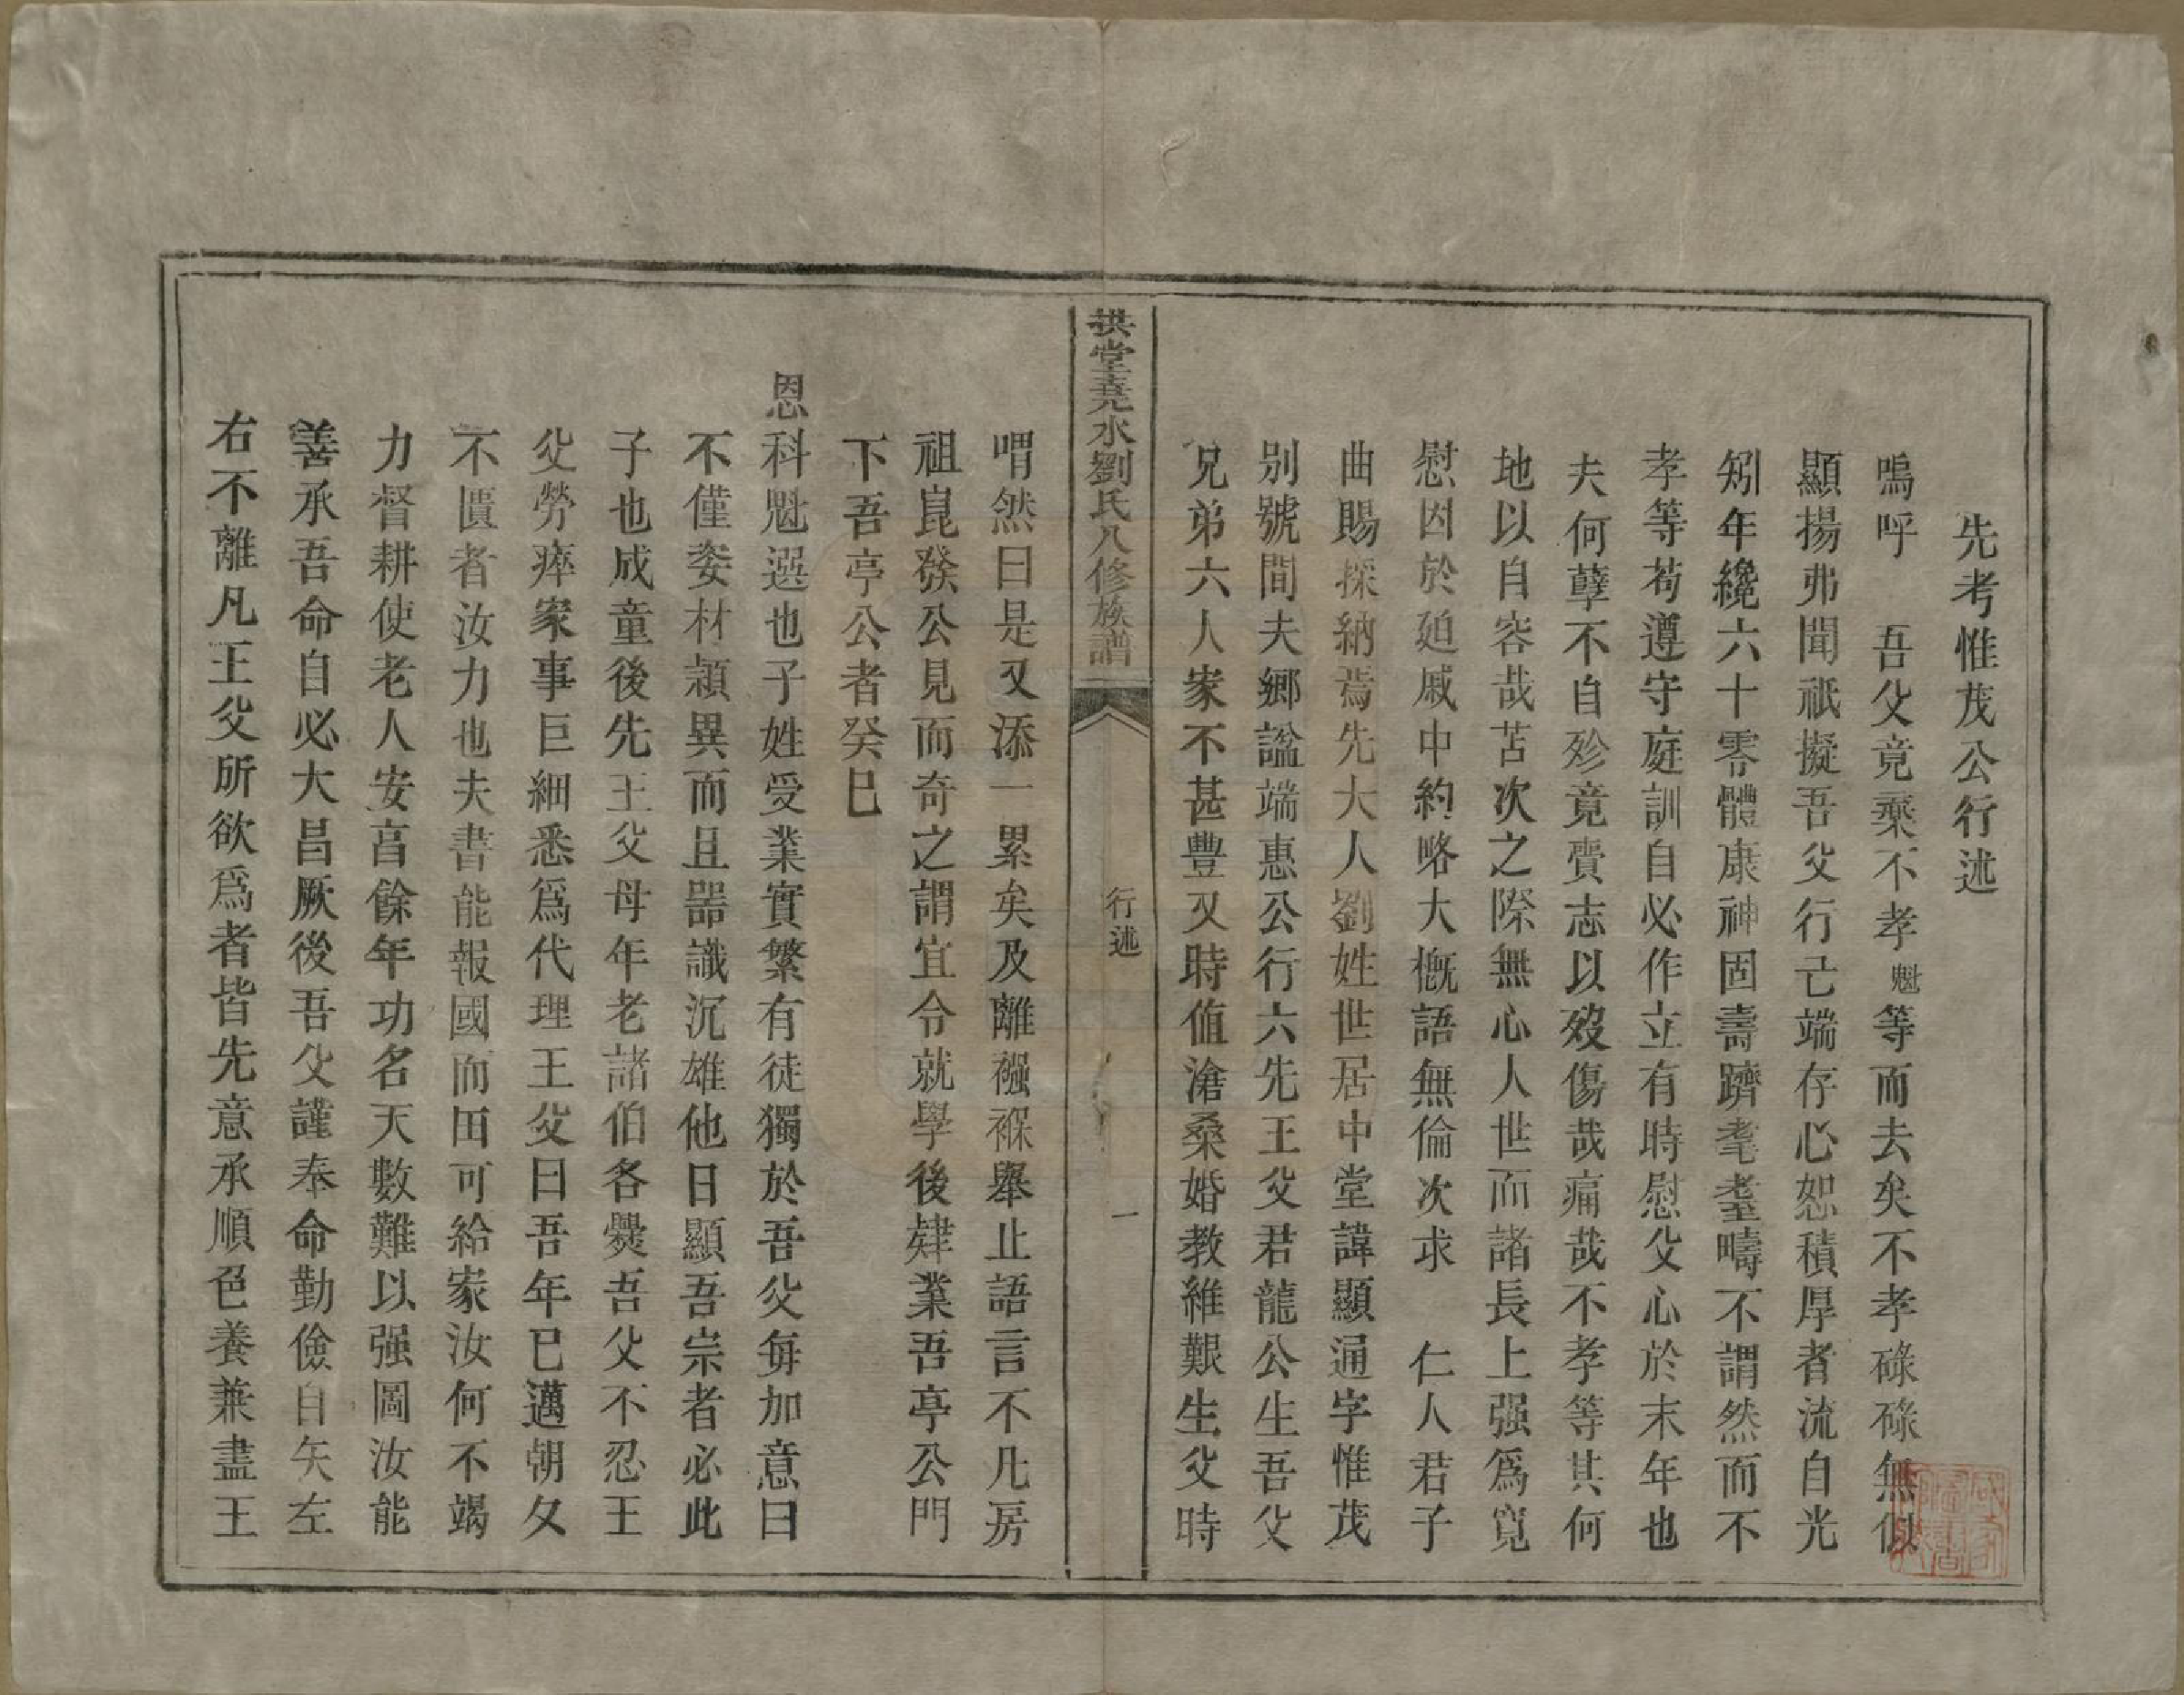 先考惟茂公行述
嗚呼　吾父竟棄不孝魁等而去矣不孝碌碌無似
顯揚弗聞祇擬吾父行己端存心恕積厚者流自光
矧年纔六十零體康神固壽躋耄耋疇不謂然而不
孝等苟遵守庭訓自必作立有時慰父心於末年也
夫何孽不自殄竟賫志以歿傷哉痛哉不孝等其何
地以自容哉苫次之際無心人世而諸長上强爲寬
慰因於廹戚中約略大槪語無倫次求　仁人君子
曲賜採納焉先大人劉姓世居中堂諱顯通字惟茂
别號間夫鄉諡端惠公行六先王父君龍公生吾父
兄弟六人家不甚豐又時值滄桑婚教維艱生父時
拱堂堯水劉氏八修族譜
行述
一
喟然曰是又添一累矣及離襁褓舉止語言不凡房
祖崑發公見而奇之謂宜令就學後肄業吾亭公門
下吾亭公者癸巳
恩科魁選也子姓受業實繁有徒獨於吾父每加意曰
不僅姿材穎異而且器識沉雄他日顯吾宗者必此
子也成童後先王父母年老諸伯各爨吾父不忍王
父勞瘁家事巨細悉爲代理王父曰吾年已邁朝夕
不匱者汝力也夫書能報國而田可給家汝何不竭
力督耕使老人安亯餘年功名天數難以强圖汝能
善承吾命自必大昌厥後吾父謹奉命勤儉自矢左
右不離凡王父所欲爲者皆先意承順色養兼盡王